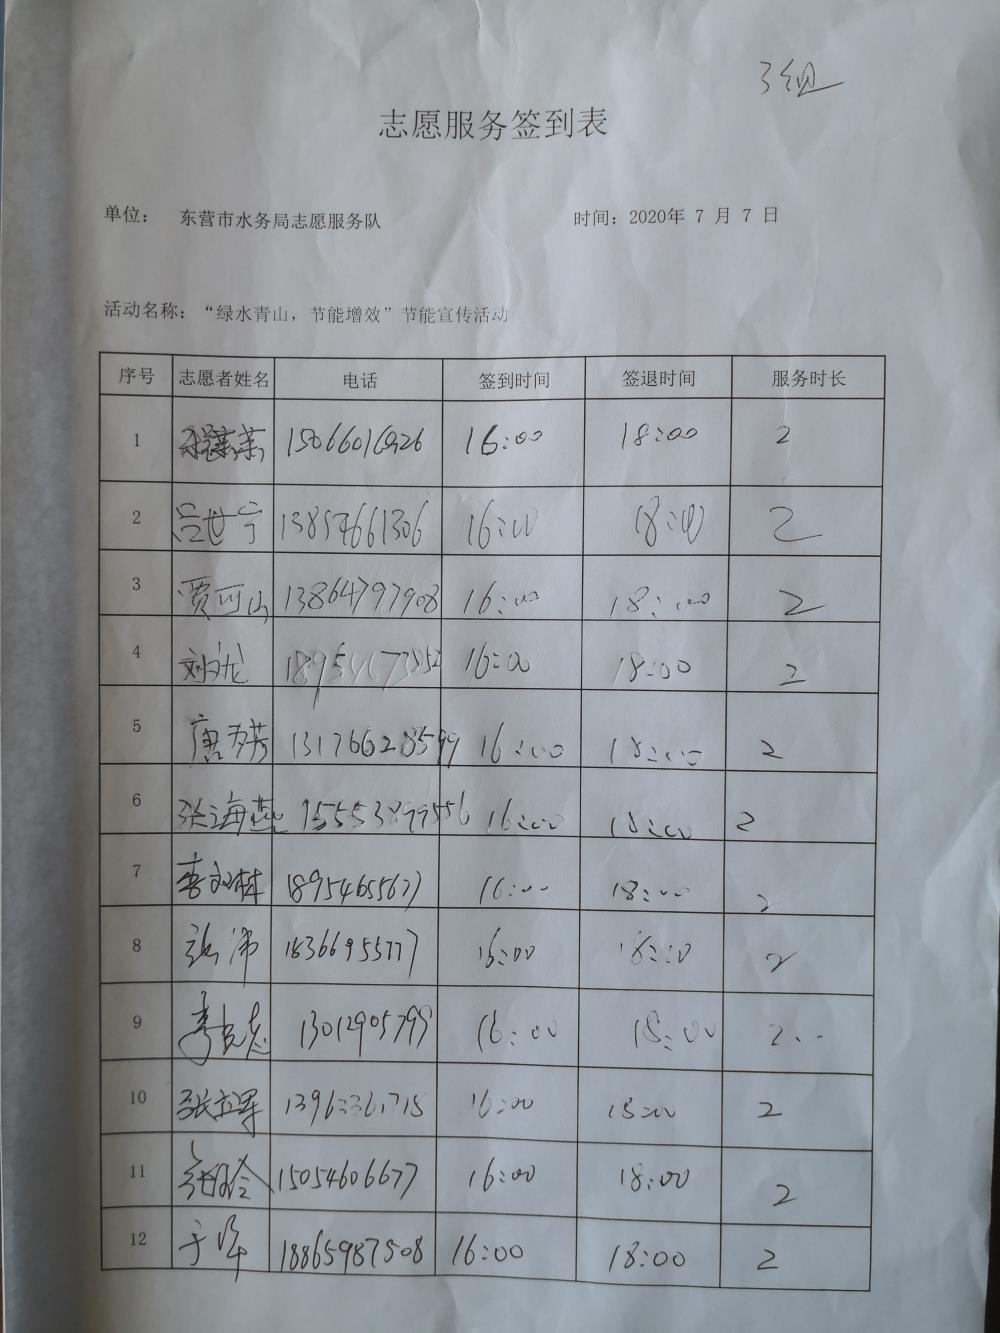 3组
志愿服务签到表
单位： 东营市水务局志愿服务队 时间：2020年 7 月 7 日
活动名称：“绿水青山，节能增效”节能宣传活动
序号 志愿者姓名 电话 签到时间 签退时间 服务时长
1 15066016926 16:00 18:00 2
2 吕世宁 13854661306 16:00 18:00 2
3 贾可山 13864797908 16:00 18:00 2
4 刘文龙 16:00 18:00 2
5 唐芳 13176628599 16:00 18:00 2
6 张海燕 15553899556 16:00 18:00 2
7 18954655677 16:00 18:00 2
8 张沛 18366955777 16:00 18:00 2
9 李志 13012905799 16:00 18:00 2
10 张立军 16:00 18:00 2
11 15054606677 16:00 18:00 2
12 于军 18865987508 16:00 18:00 2